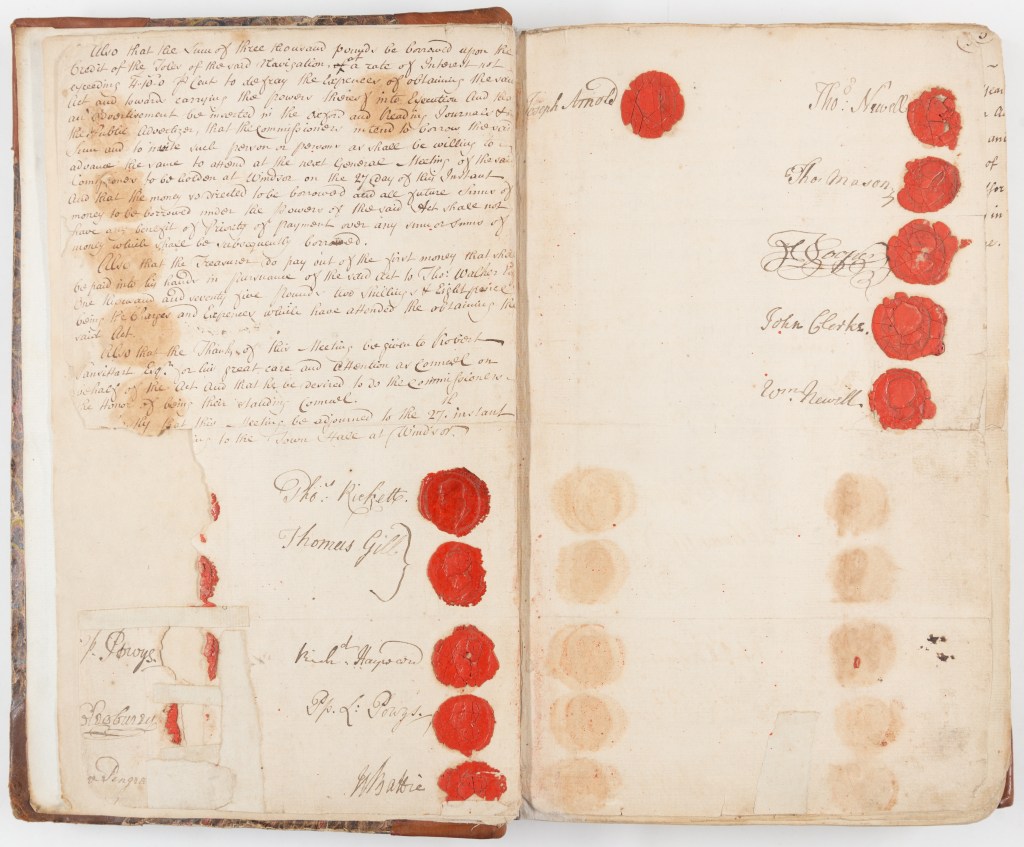 Also that the Sum of three thousand pounds be borrowed upon the
Credit of the Toles of the said Navigation, at a rate of Interest not
exceeding 4..10..0 P Cent to defray the Expences of obtaining the said
Act and toward carrying the powers thereof into Execution And that
an Advertisement be inserted in the Oxford and Reading Journals &
the Public Advertizer, that the Commissioners intend to borrow the said
Sum and to invite such person or persons as shall be willing to
advance the same to attend at the next General Meeting of the said
Comissioners to be holden at Windsor on the 27 day of this Instant
And that the money so directed to be borrowed and all future Sums of
money to be borrowed under the Powers of the said Act shall not
have any benefit of Priority of payment over any sum or sums of
money which shall be subsequently borrowed.
Also that the Treasurer do pay out of the first money that shall
be paid into his hands in pursuance of the said Act to Thos. Walker
One thousand and seventy five Pounds two Shillings & Eight pence
being the Charges and Expences which have attended the obtaining the
said Act.
Also that the Thanks of this Meeting be given to Robert
Vansittart Esqr. for his great care and Attention as Counsel on
behalf of the Act And that he be desired to do the Commissioners
the Honor of being their standing Counsel.
that this Meeting be adjourned to the 27th instant
to the Town Hall at Windsor.
Thos. Rickett.
Thomas Gill
P. Powys.
Richd. Hayward
Pp. L. Powys.
W Battie
Joseph Arnold
Thos. Newell
Tho. Mason
John Clerke.
Wm. Newell.